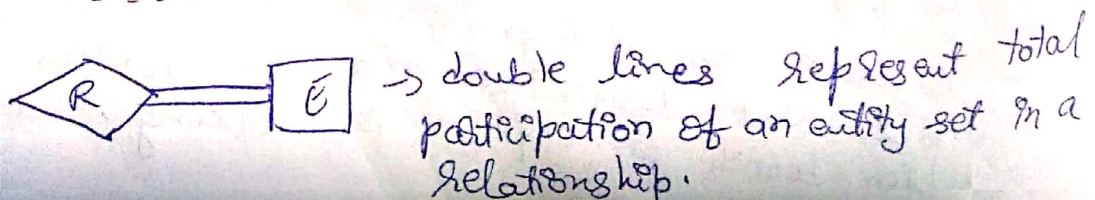 R E → double lines represent total
participation of an entity set in a
relationship.